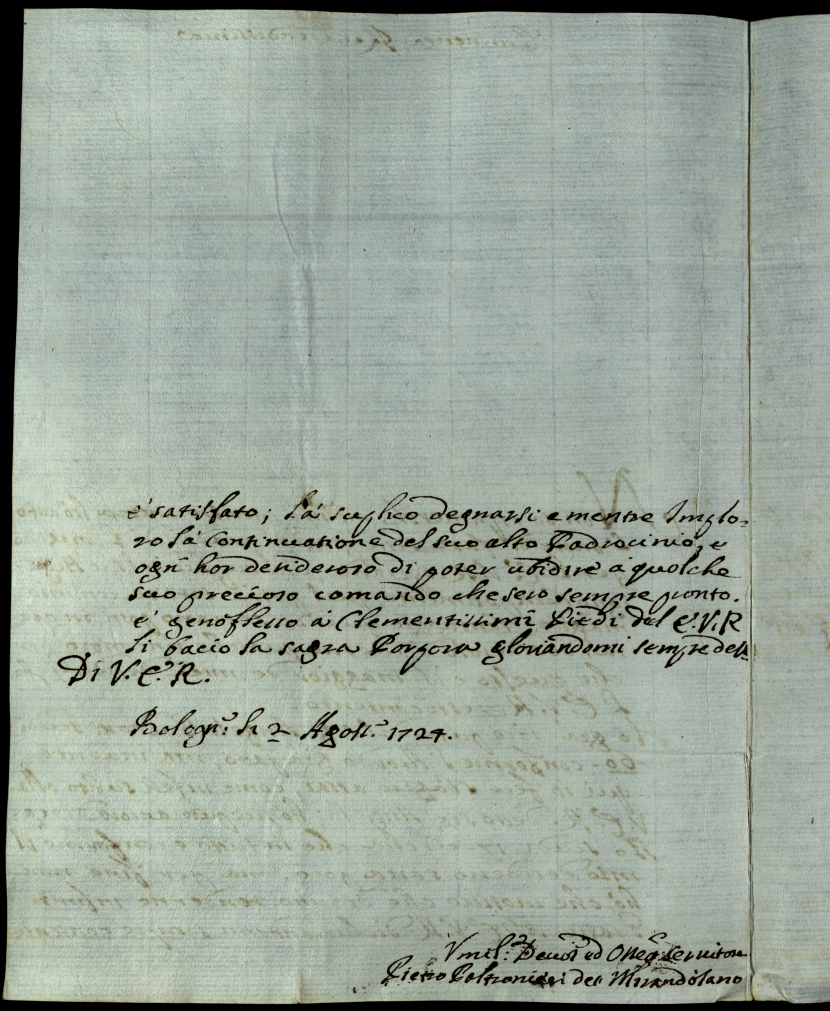 é satisfato; la suplico degnarsi e mentre Implo=
ro la Continuatione del suo alto Padrocinio, e
ogn hor desideroso di poter ubidire a qualche
suo precioso comando che sero sempre pronto.
é genoflesso á Clementissimi Piedi del E.V.R
li bacio la sagra Porpora gloriandomi sempre
Di V. E. R.
Bolog.ª li 2 Agost.º 1724.
Vmil.º Deuo.º ed Obleg.º seruitore
Pietro Paltronieri det Mirandolano